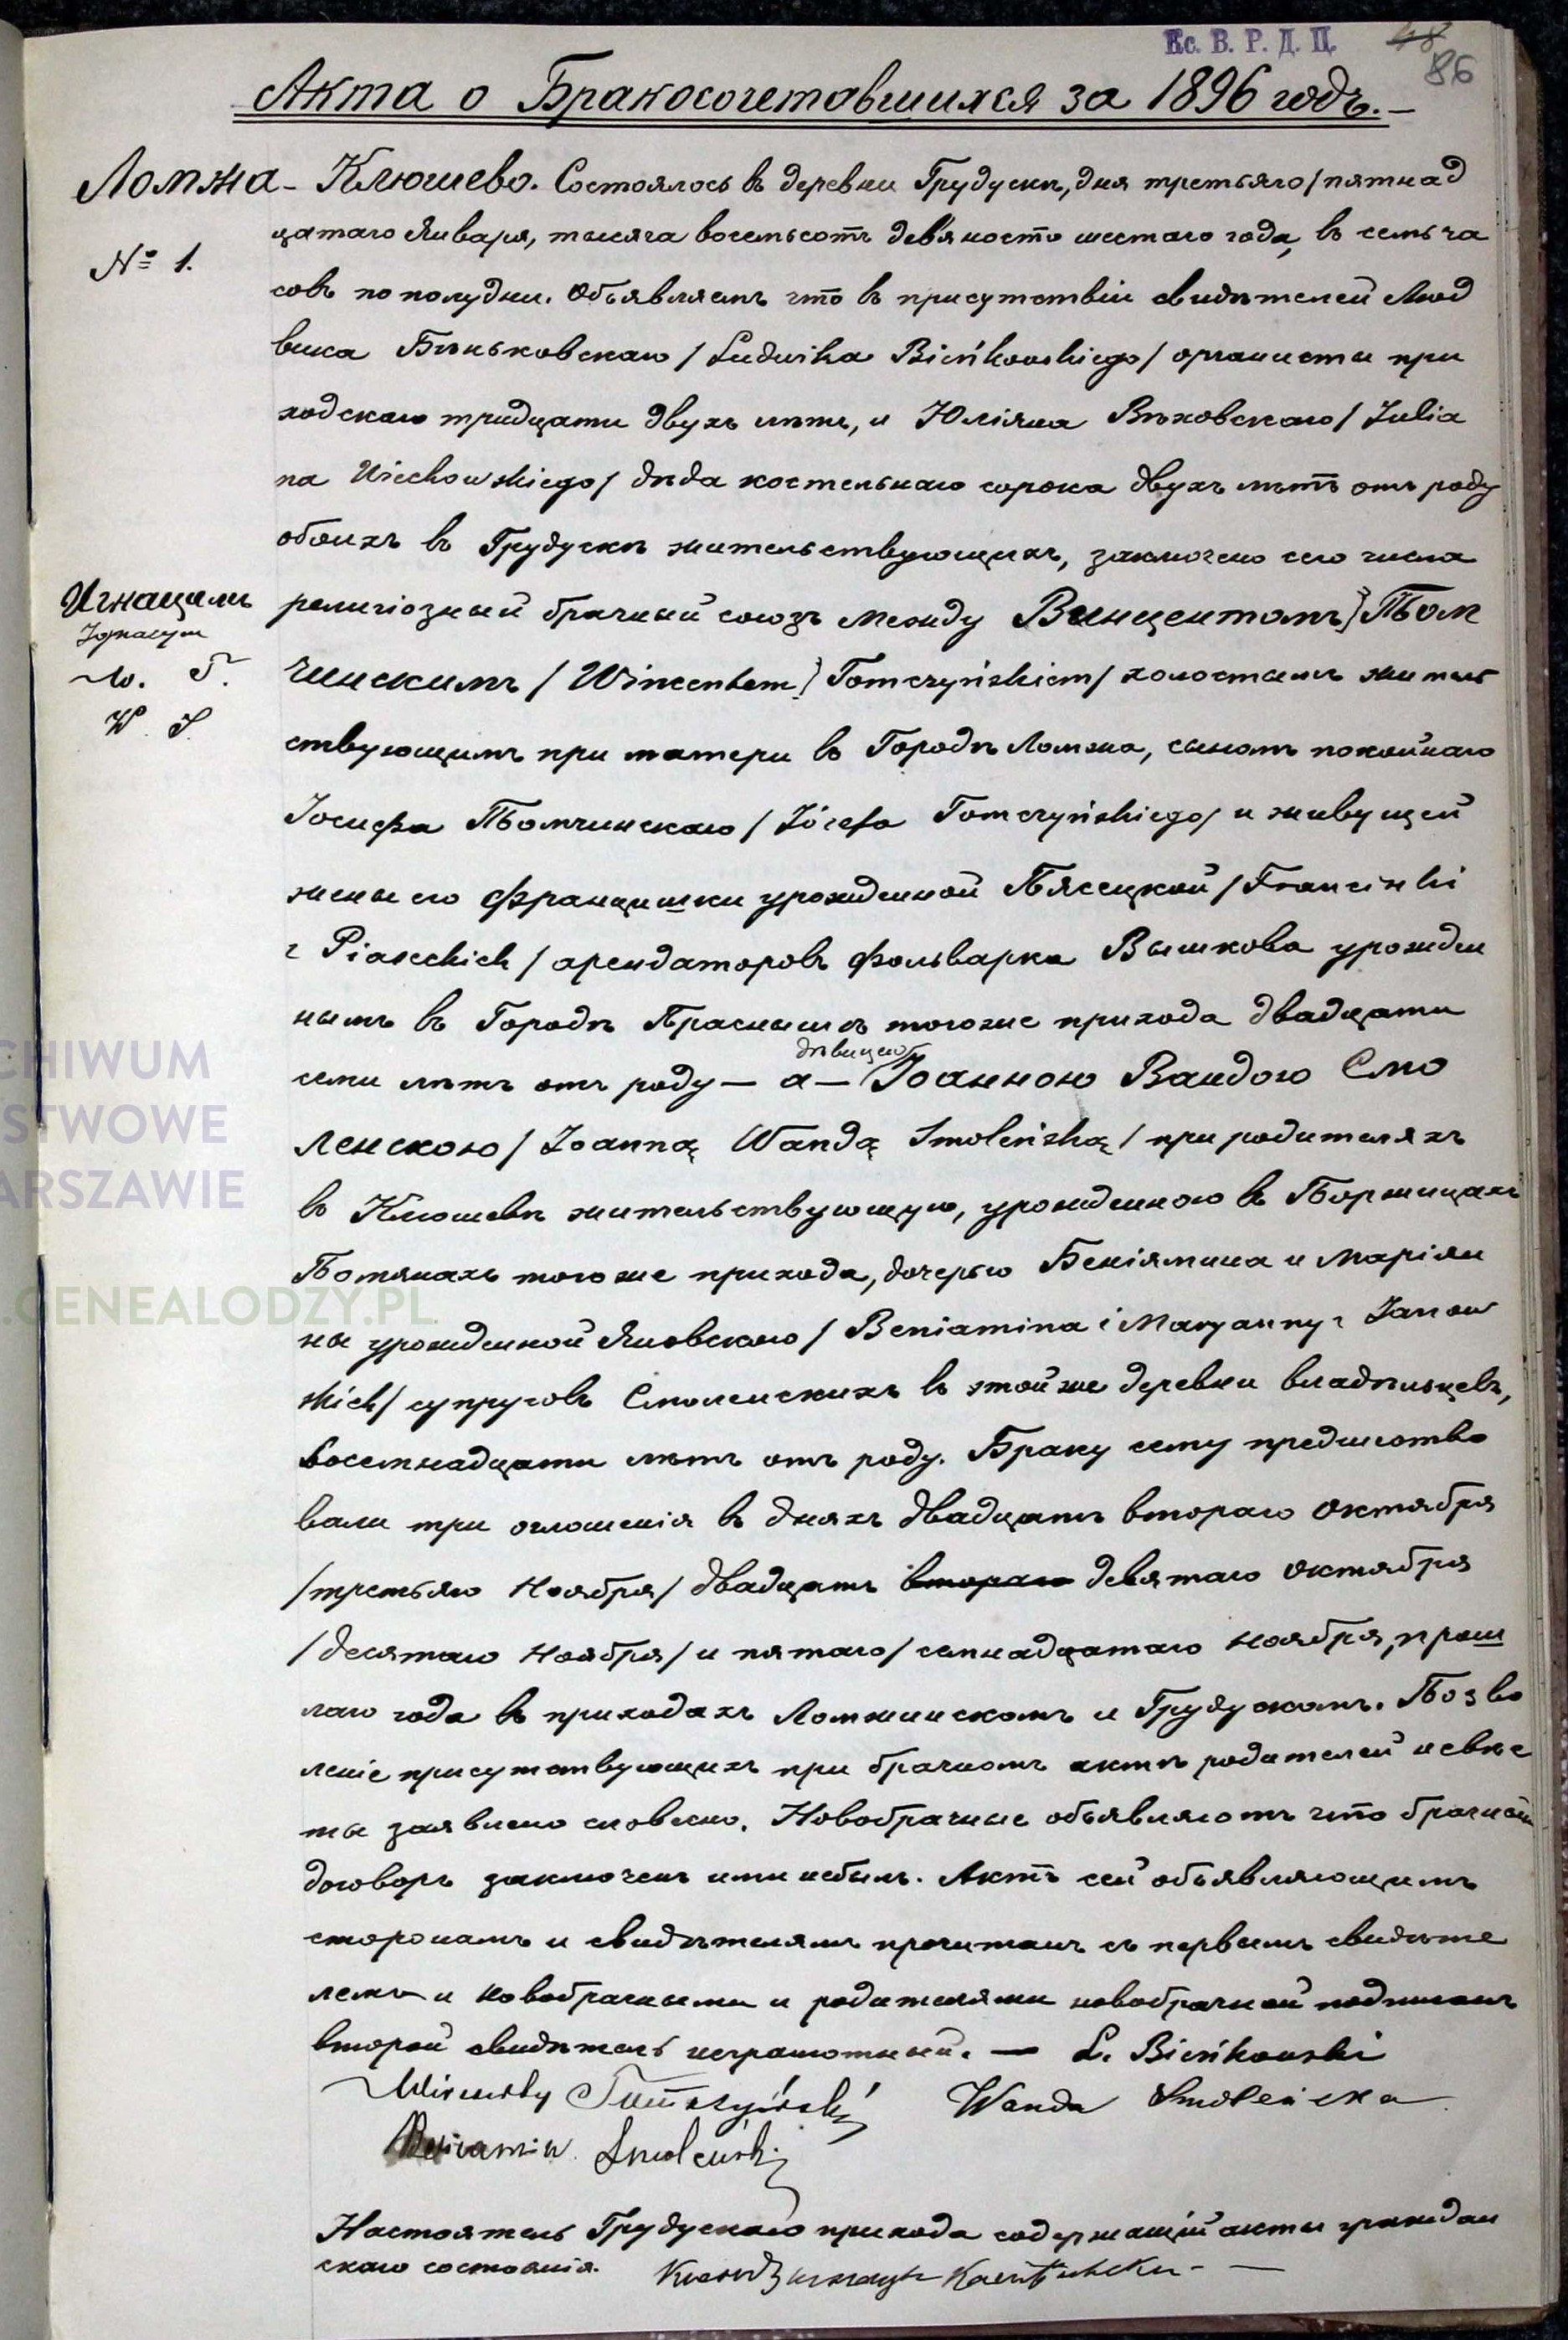 Вс. В. Р. Д. Ц.
48
86
Акта о Бракосочетавшихся за 1896 годъ.
Ломжа - Клюшево. Состоялось въ деревни Грудускъ, дня третьяго / пятнад
№ 1.
цатаго Января, тысяча восемьсотъ девяносто шестаго года, въ семь ча
совъ по полудни. Объявляемъ что въ присутствіи свидѣтелей Люд
вика Бѣньковскаго / Ludwika Bieńkowskiego / органиста при
ходскаго тридцати двухъ лѣтъ, и Юліяна Вѣховскаго / Julia
na Wiechowskiego / дѣда костельнаго сорока двухъ лѣтъ отъ роду
обоихъ въ Грудускѣ жительствующихъ, заключено сего числа
Игнацимъ
Ignacym
религіозный брачный союзъ между Винцентомъ} Том
чинскимъ / Wincentem} Tomczyńskiem / холостымъ житель
W. S.
ствующимъ при матери въ Городѣ Ломжа, сыномъ покойнаго
Іосифа Томчинскаго / Józefa Tomczyńskiego / и живущей
жены его Францишки урожденной Пясецкой / Franciski
z Piaseckich / арендаторовъ фольварка Вышкова урожден
нымъ въ Городѣ Праснышъ тогоже прихода двадцати
дѣвицею
семи лѣтъ отъ роду — а — Іоанною Вандою Смо
ленскою / Joanną Wandą Smoleńską / при родителяхъ
въ Клюшевѣ жительствующую, урожденною въ Боржицахъ
тогоже прихода, дочерью Бенiямина и Марiян
ны урожденной Яновскаго / Beniamina i Maryanny z Janow
skich / супруговъ Смоленскихъ въ этой же деревни владѣльцевъ,
восемнадцати лѣтъ отъ роду. Браку сему предшество
вали три оглошенія въ дняхъ двадцать втораго Октября
/ третьяго Ноября / двадцать втораго девятаго Октября
/ десятаго Ноября / и пятаго / семнадцатаго Ноября, прош
лаго года въ приходахъ Ломжинскомъ и Грудускомъ. Позво
леніе присутствующихъ при брачномъ актѣ родителей невѣс
ты заявлено словесно. Новобрачные объявляютъ что брачный
договоръ заключенъ ими небылъ. Актъ сей объявляющимъ
сторонамъ и свидѣтелямъ прочитанъ съ первымъ свидѣте
лемъ и новобрачными и родителями новобрачной подписанъ
второй свидѣтель неграмотный. — L. Bieńkowski
Wincenty Tomczyński Wanda Smoleńska
Beniamin Smoleński
Настоятель Грудускаго прихода содержащій акты граждан
скаго состоянія. Ксендзъ
CHIWUM
STWOWE
ARSZAWIE
.GENEALODZY.PL